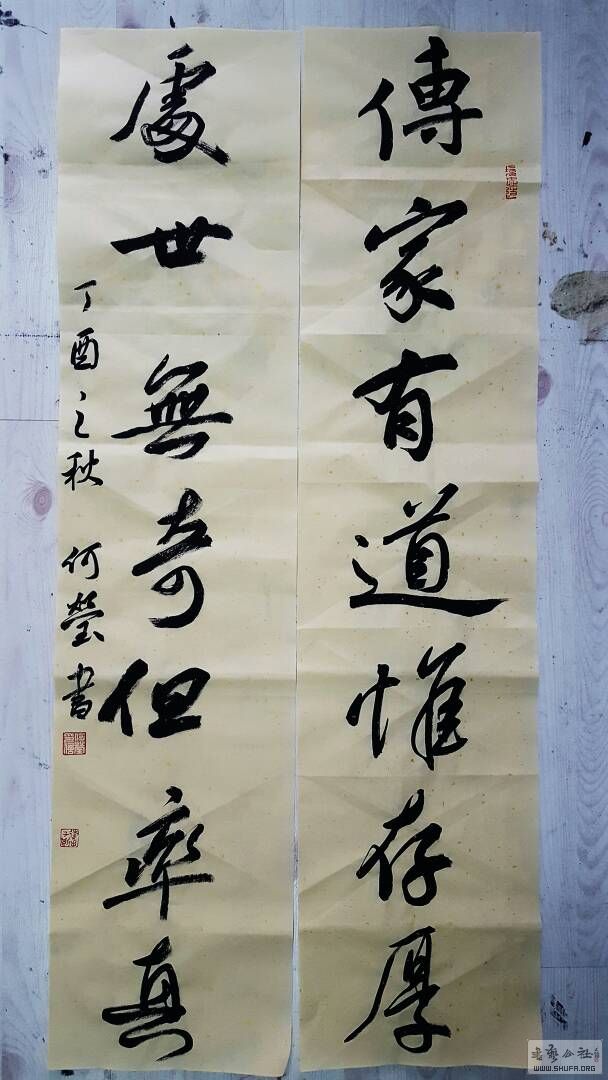 傳家有道惟存厚
處世無奇但率真
丁酉之秋 何瑩書
WWW.SHUFA.ORG